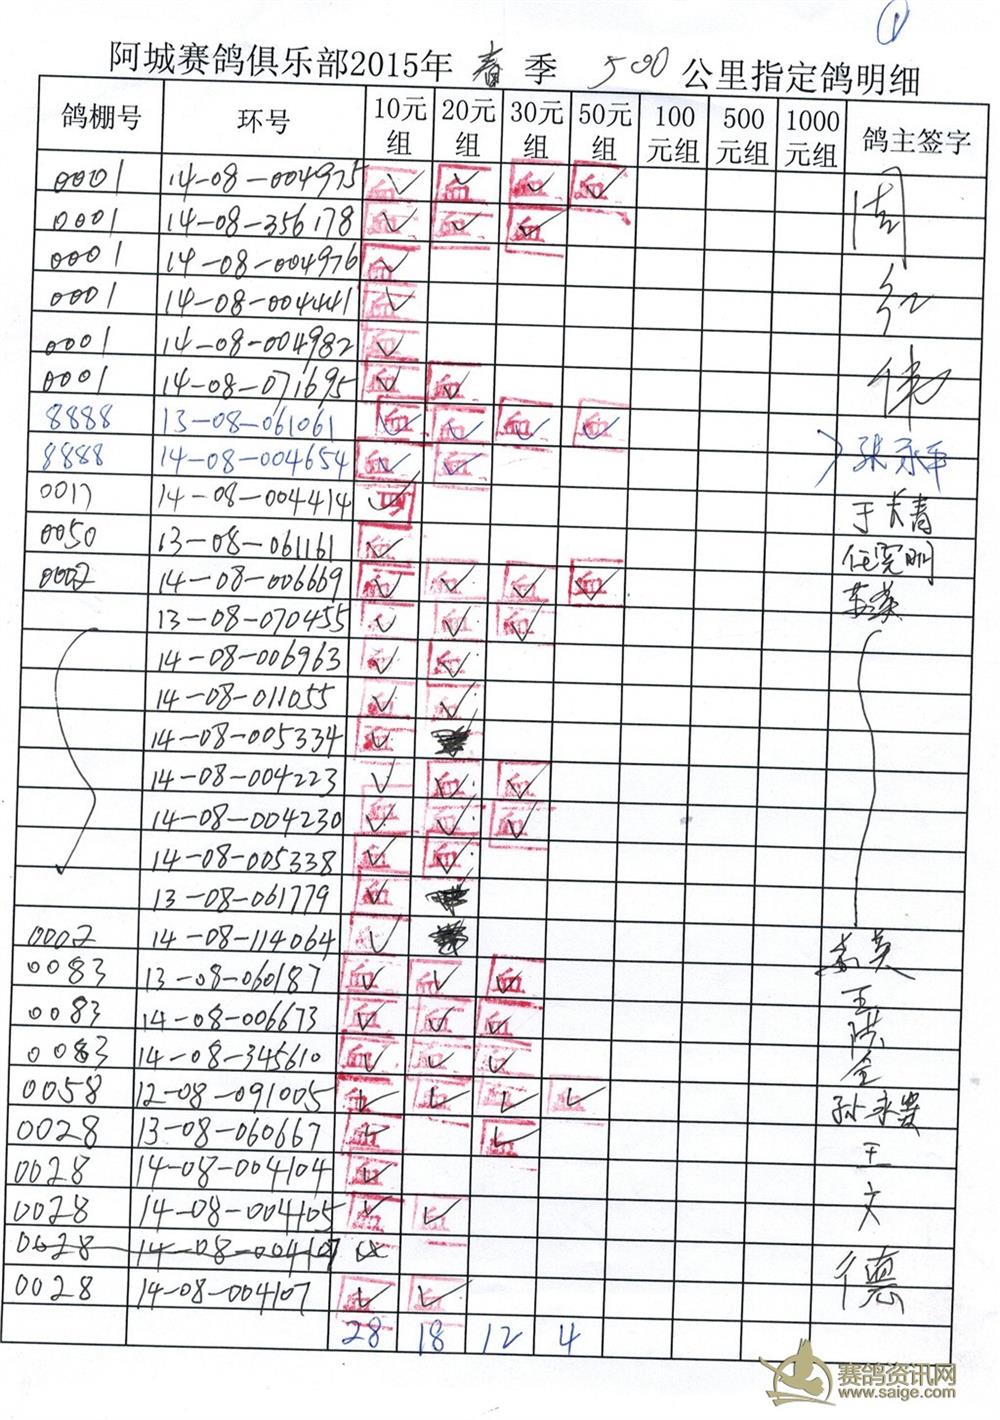 ①
阿城赛鸽俱乐部2015年 春 季 500 公里指定鸽明细
鸽棚号 环号 10元组 20元组 30元组 50元组 100元组 500元组 1000元组 鸽主签字
0001 14-08-004975 血✓ 血✓ 血✓ 血✓ 周
0001 14-08-356178 血✓ 血✓ 血✓
0001 14-08-004976 血✓
0001 14-08-004441 血✓ 红
0001 14-08-004982 血✓
0001 14-08-071695 血✓ 血✓ 伟
8888 13-08-061061 血✓ 血✓ 血✓ 血✓
8888 14-08-004654 血✓ 血✓ 张永军
0017 14-08-004414 血✓ 于长青
0050 13-08-061161 血✓ 任宪明
0002 14-08-006669 血✓ 血✓ 血✓ 血✓
13-08-070455 血✓ 血✓ 血✓
14-08-006963 血✓ 血✓
14-08-011055 血✓ 血✓
14-08-005334 血✓
14-08-004223 ✓ 血✓ 血✓
14-08-004230 血✓ 血✓ 血✓
14-08-005338 血✓ 血✓
13-08-061779 血✓
0002 14-08-114064 血✓
0083 13-08-060187 血✓ 血✓ 血✓ 王
0083 14-08-006673 血✓ 血✓ 血✓ 洪
0083 14-08-345610 血✓ 血✓ 血✓ 全
0058 12-08-091005 血✓ 血✓ 血✓ 血✓
0028 13-08-060667 血✓ 血✓ 王
0028 14-08-004104 血✓
0028 14-08-004105 血✓ 血✓ 文
0028 14-08-004107
0028 14-08-004107 血✓ 血✓ 德
28 18 12 4
赛鸽资讯网
www.saige.com